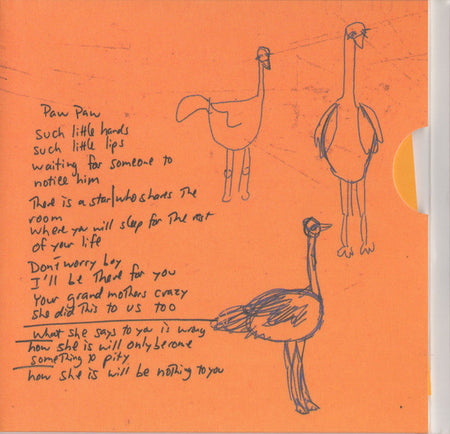 Paw Paw
Such little hands
such little lips
waiting for someone to
notice him
There is a star who shares the
room
where you will sleep for the rest
of your life
Don't worry boy
I'll be there for you
Your grand mothers crazy
she did this to us too
what she says to you is wrong
how she is will only become
something to pity
how she is will be nothing to you